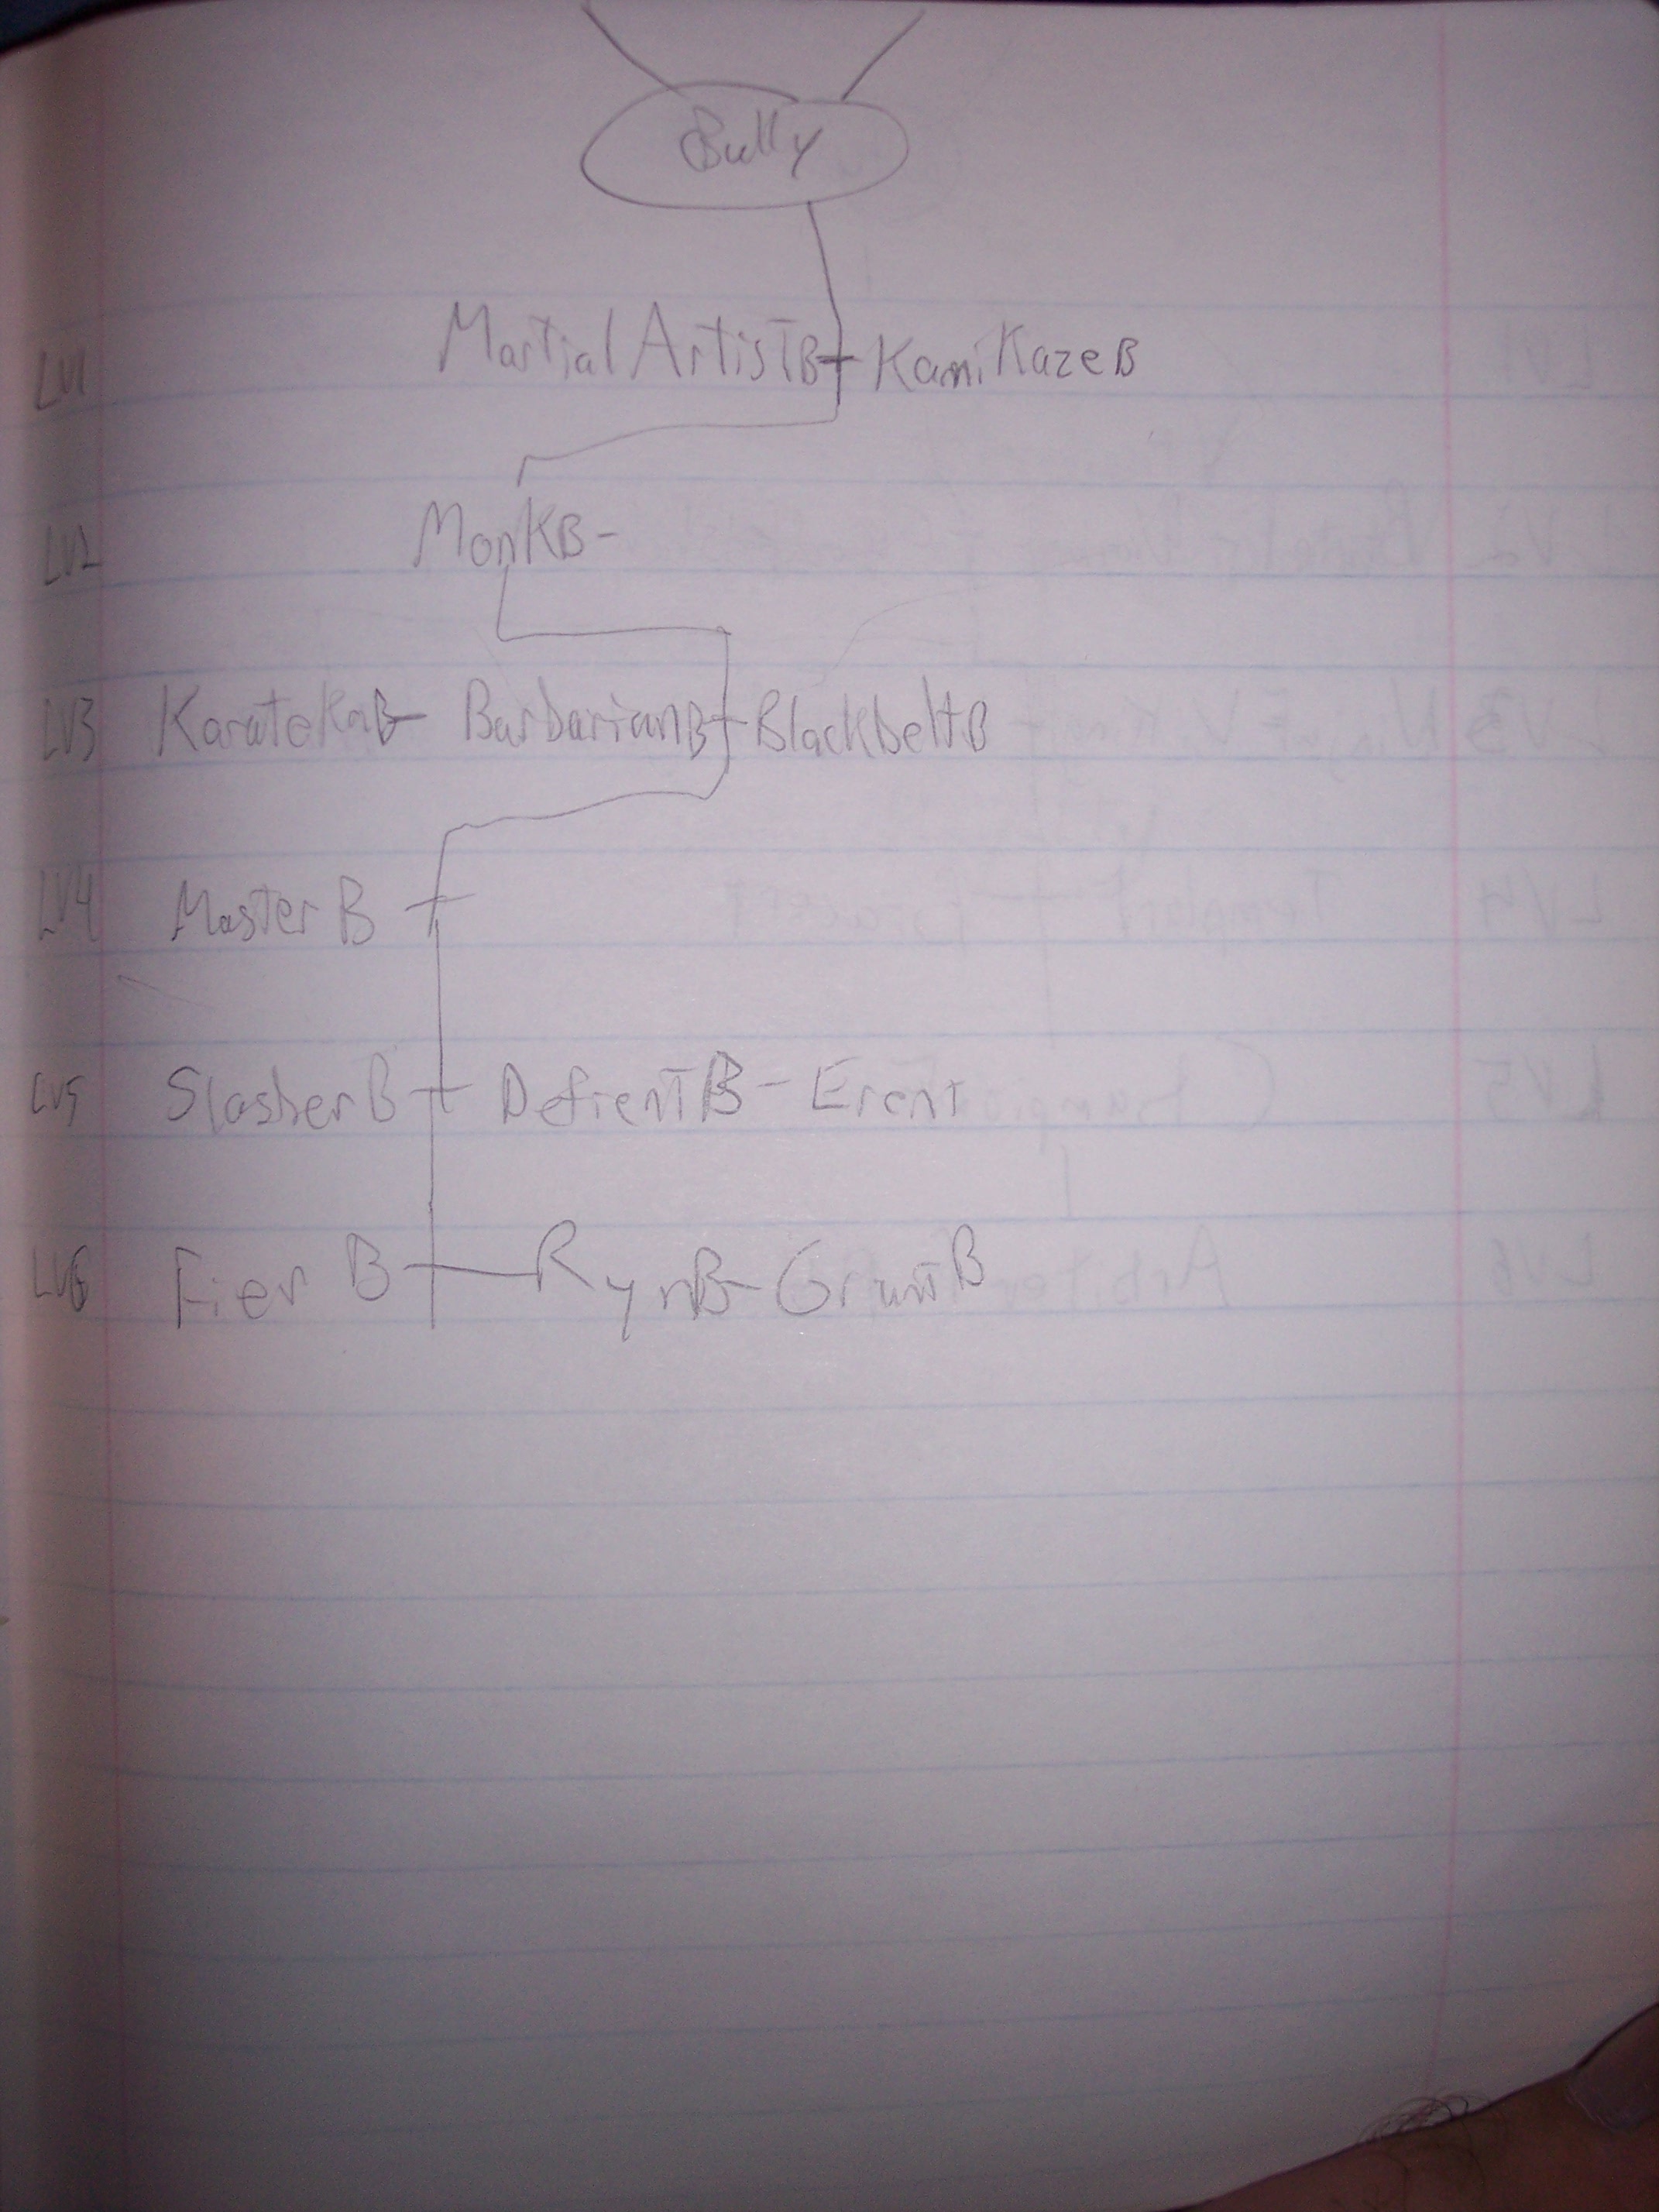 Bully
LV1 Martial ArtistB KamiKazeB
LV2 MonKB-
LV3 KarateKaB- BarbarianB BlackbeltB
LV4 Master B
LV5 SlasherB DefientB - Erent
LV6 Fier B RynB- GruntB